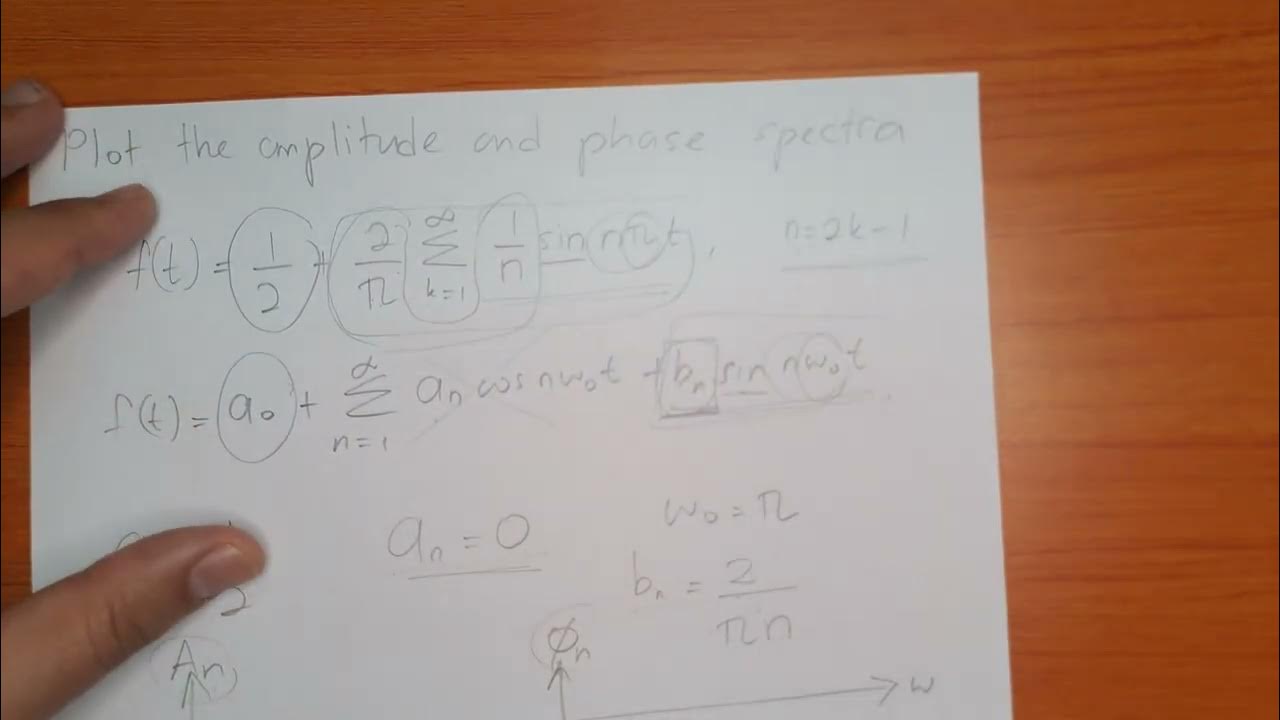 Plot the amplitude and phase spectra
f(t) = 1/2 + 2/π ∞ Σ k=1 1/n sin nπt, n=2k-1
f(t) = a₀ + ∞ Σ n=1 aₙ cos nω₀t + bₙ sin nω₀t
aₙ = 0 ω₀ = π
2 bₙ = 2/πn
Aₙ φₙ
ω